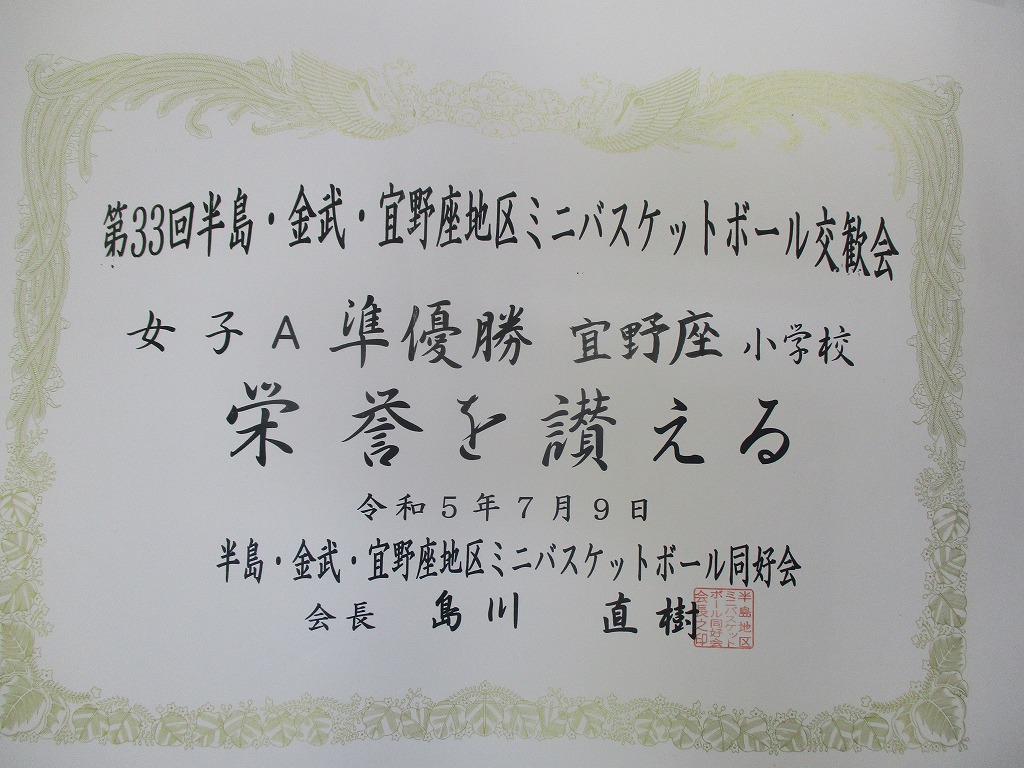 第33回半島・金武・宜野座地区ミニバスケットボール交歓会
女子A 準優勝 宜野座 小学校
栄誉を讃える
令和5年7月9日
半島・金武・宜野座地区ミニバスケットボール同好会
会長 島川 直樹
半島地区
ミニバスケット
ボール同好会
会長之印